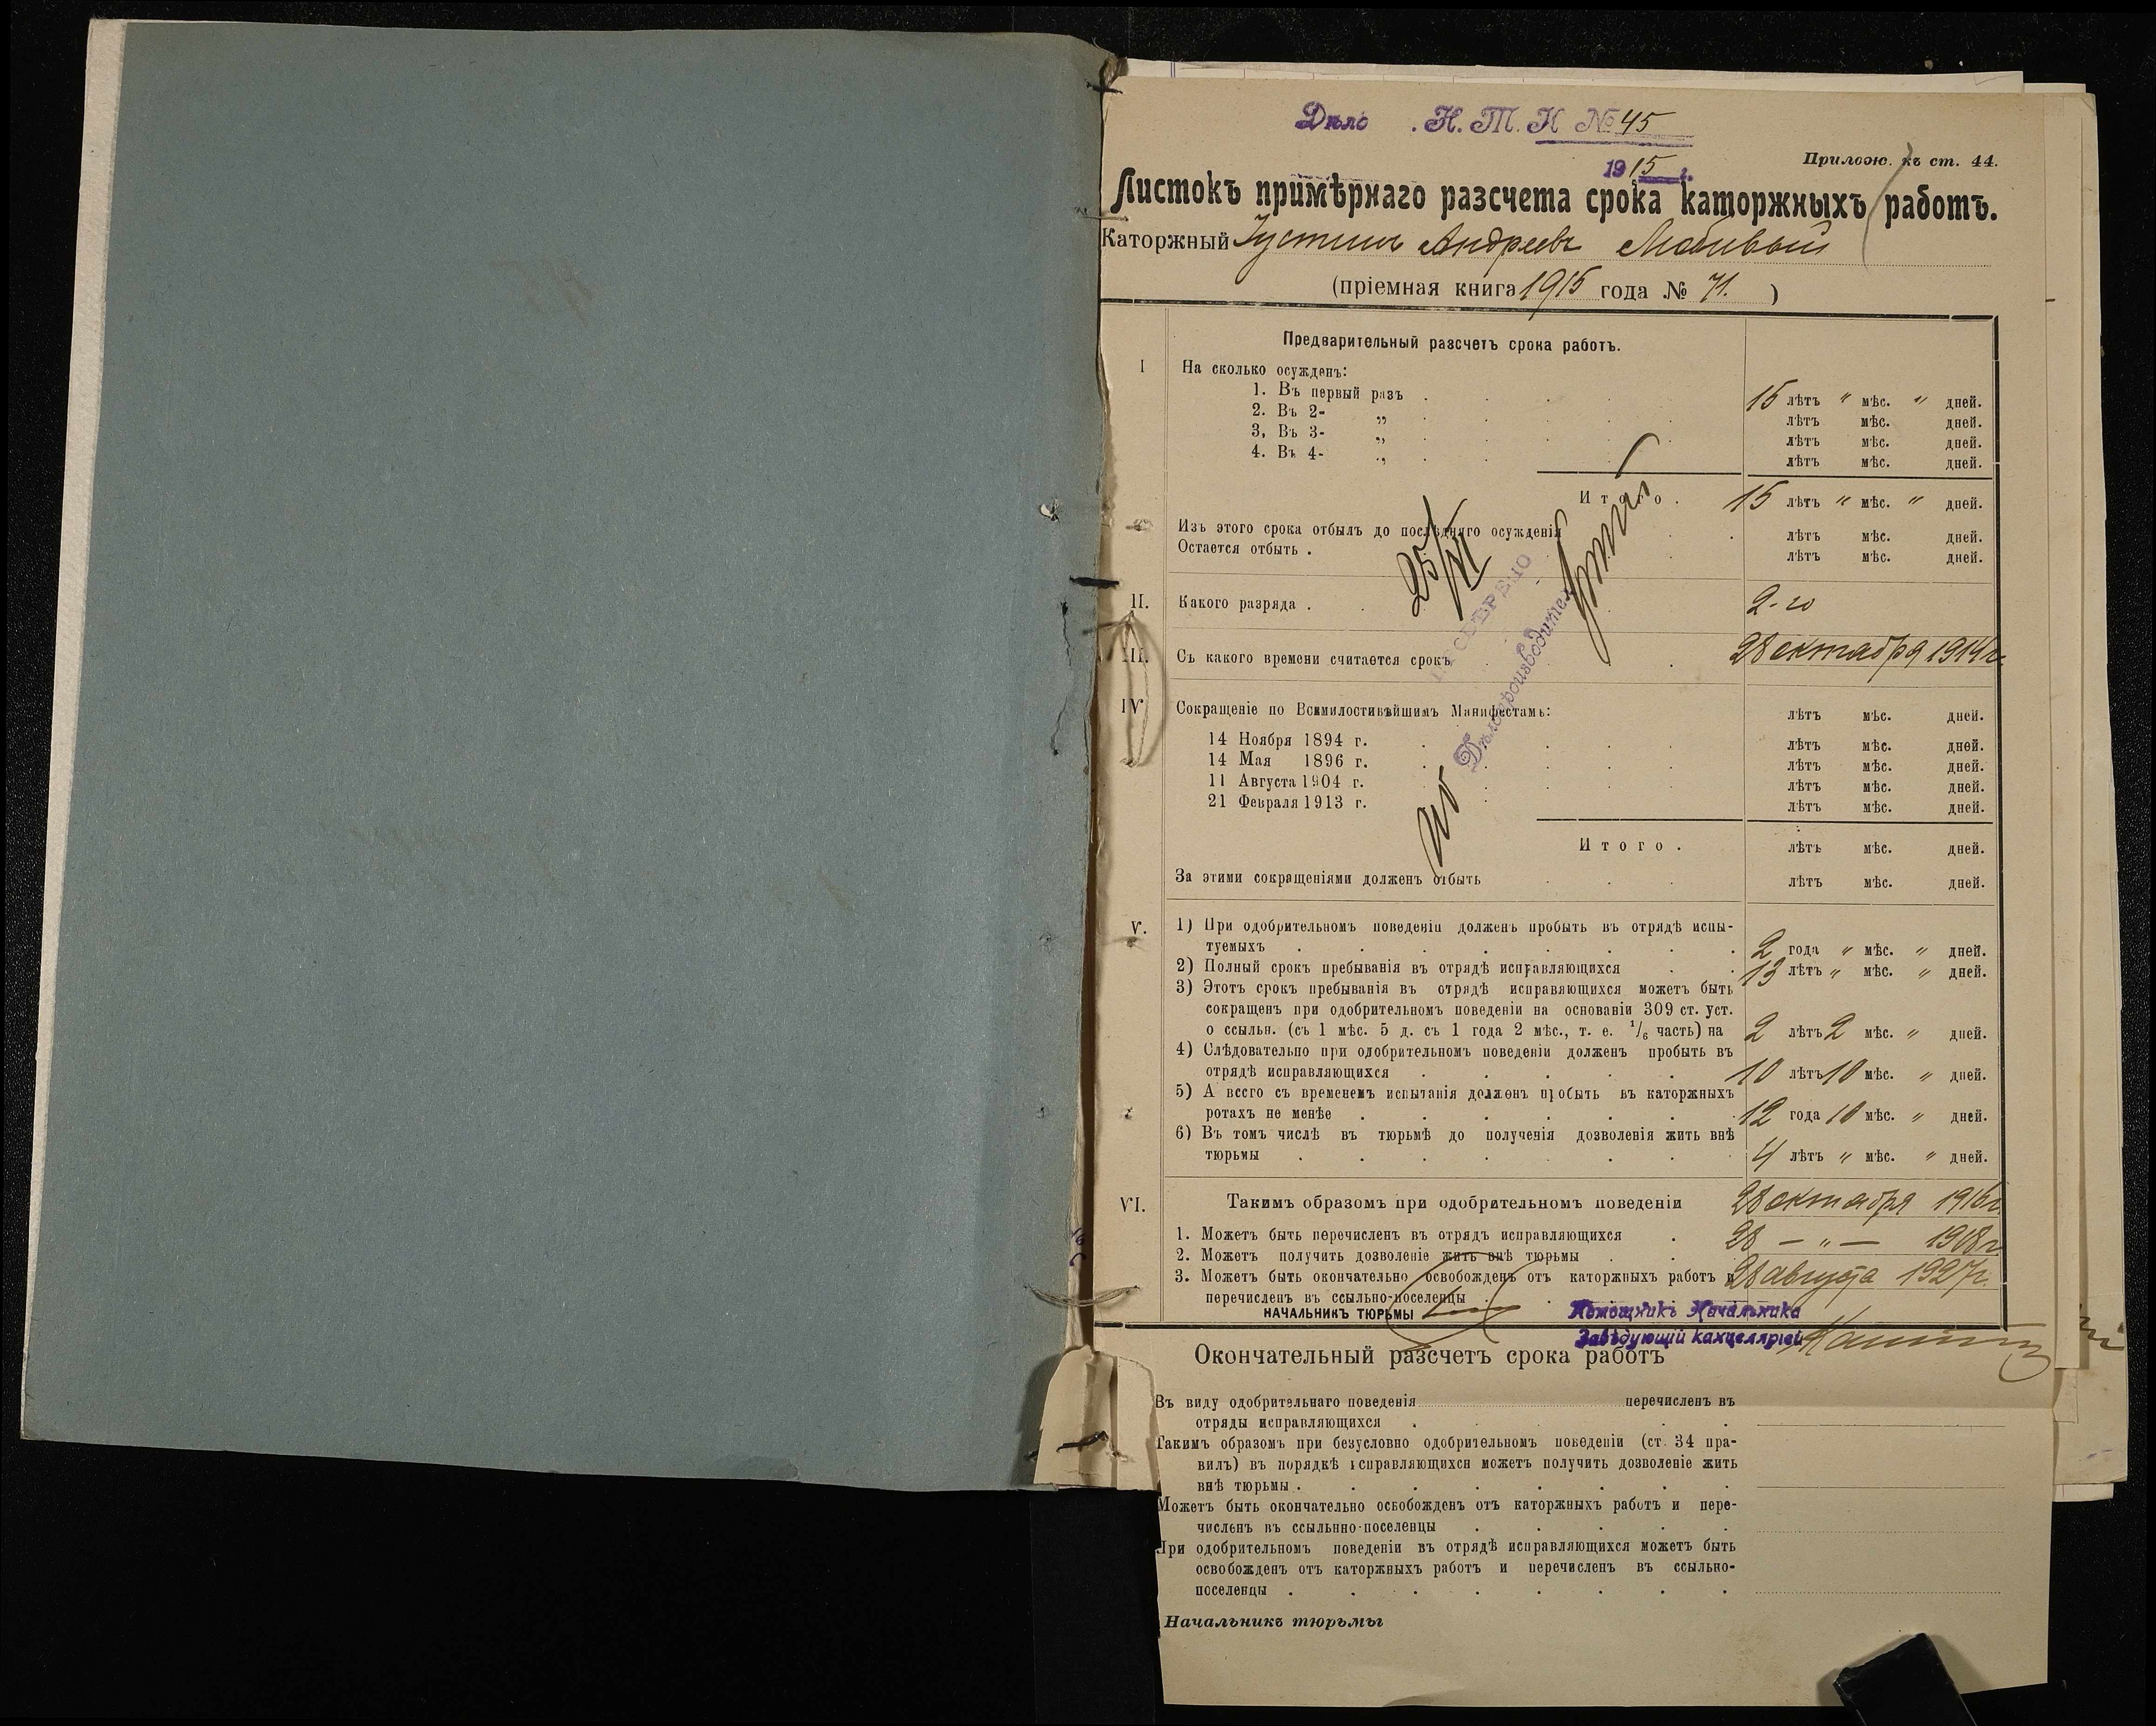 Дѣло Н.Т.К №45
1915 г.
Прилож. къ ст. 44.
Листокъ примѣрнаго разсчета срока каторжныхъ работъ.
Каторжный Устинъ Андреевъ
(пріемная книга 1915 года № 71.)
Предварительный разсчетъ срока работъ.
I На сколько осужденъ:
1. Въ первый разъ . 15 лѣтъ " мѣс. " дней.
2. Въ 2- „ лѣтъ мѣс. дней.
3, Въ 3- „ лѣтъ мѣс. дней.
4. Въ 4- „ лѣтъ мѣс. дней.
Итого. 15 лѣтъ " мѣс. " дней.
Изъ этого срока отбылъ до послѣдняго осужденія лѣтъ мѣс. дней.
Остается отбыть . лѣтъ мѣс. дней.
25/VI
ПРОВѢРЕНО
Дѣлопроизводитель
II. Какого разряда . 2-го
III. Съ какого времени считается срокъ 28 октября 1914 г.
IV Сокращеніе по Всемилостивѣйшимъ Манифестамъ: лѣтъ мѣс. дней.
14 Ноября 1894 г. лѣтъ мѣс. дней.
14 Мая 1896 г. лѣтъ мѣс. дней.
11 Августа 1904 г. лѣтъ мѣс. дней.
21 Февраля 1913 г. лѣтъ мѣс. дней.
Итого. лѣтъ мѣс. дней.
За этими сокращеніями долженъ отбыть лѣтъ мѣс. дней.
V. 1) При одобрительномъ поведеніи долженъ пробыть въ отрядѣ испы-
туемыхъ . 2 года " мѣс. " дней.
2) Полный срокъ пребыванія въ отрядѣ исправляющихся 13 лѣтъ " мѣс. " дней.
3) Этотъ срокъ пребыванія въ отрядѣ исправяющихся можетъ быть
сокращенъ при одобрительномъ поведеніи на основаніи 309 ст. уст.
о ссыльн. (съ 1 мѣс. 5 д. съ 1 года 2 мѣс., т. е. 1/6 часть) на 2 лѣтъ 2 мѣс. " дней.
4) Слѣдовательно при одобрительномъ поведеніи долженъ пробыть въ
отрядѣ исправляющихся . 10 лѣтъ 10 мѣс. " дней.
5) А всего съ временемъ испытанія долженъ пробыть въ каторжныхъ
ротахъ не менѣе . 12 года 10 мѣс. " дней.
6) Въ томъ числѣ въ тюрьмѣ до полученія дозволенія жить внѣ
тюрьмы . 4 лѣтъ " мѣс. " дней.
VI. Такимъ образомъ при одобрительномъ поведеніи 28 октября 1916 г.
1. Можетъ быть перечисленъ въ отрядъ исправляющихся . 28 — " — 1918 г.
2. Можетъ получить дозволеніе жить внѣ тюрьмы .
3. Можетъ быть окончательно освобожденъ отъ каторжныхъ работъ и 28 августа 1927 г.
перечисленъ въ ссыльно-поселенцы .
НАЧАЛЬНИКЪ ТЮРЬМЫ Помощникъ Начальника
Завѣдующій канцеляріей
Окончательный разсчетъ срока работъ
Въ виду одобрительнаго поведенія перечисленъ въ
отряды исправляющихся .
Такимъ образомъ при безусловно одобрительномъ поведеніи (ст. 34 пра-
вилъ) въ порядкѣ исправляющихся можетъ получить дозволеніе жить
внѣ тюрьмы .
Можетъ быть окончательно освобожденъ отъ каторжныхъ работъ и пере-
численъ въ ссыльнно-поселенцы .
При одобрительномъ поведеніи въ отрядѣ исправляющихся можетъ быть
освобожденъ отъ каторжныхъ работъ и перечисленъ въ ссыльно-
поселенцы .
Начальникъ тюрьмы